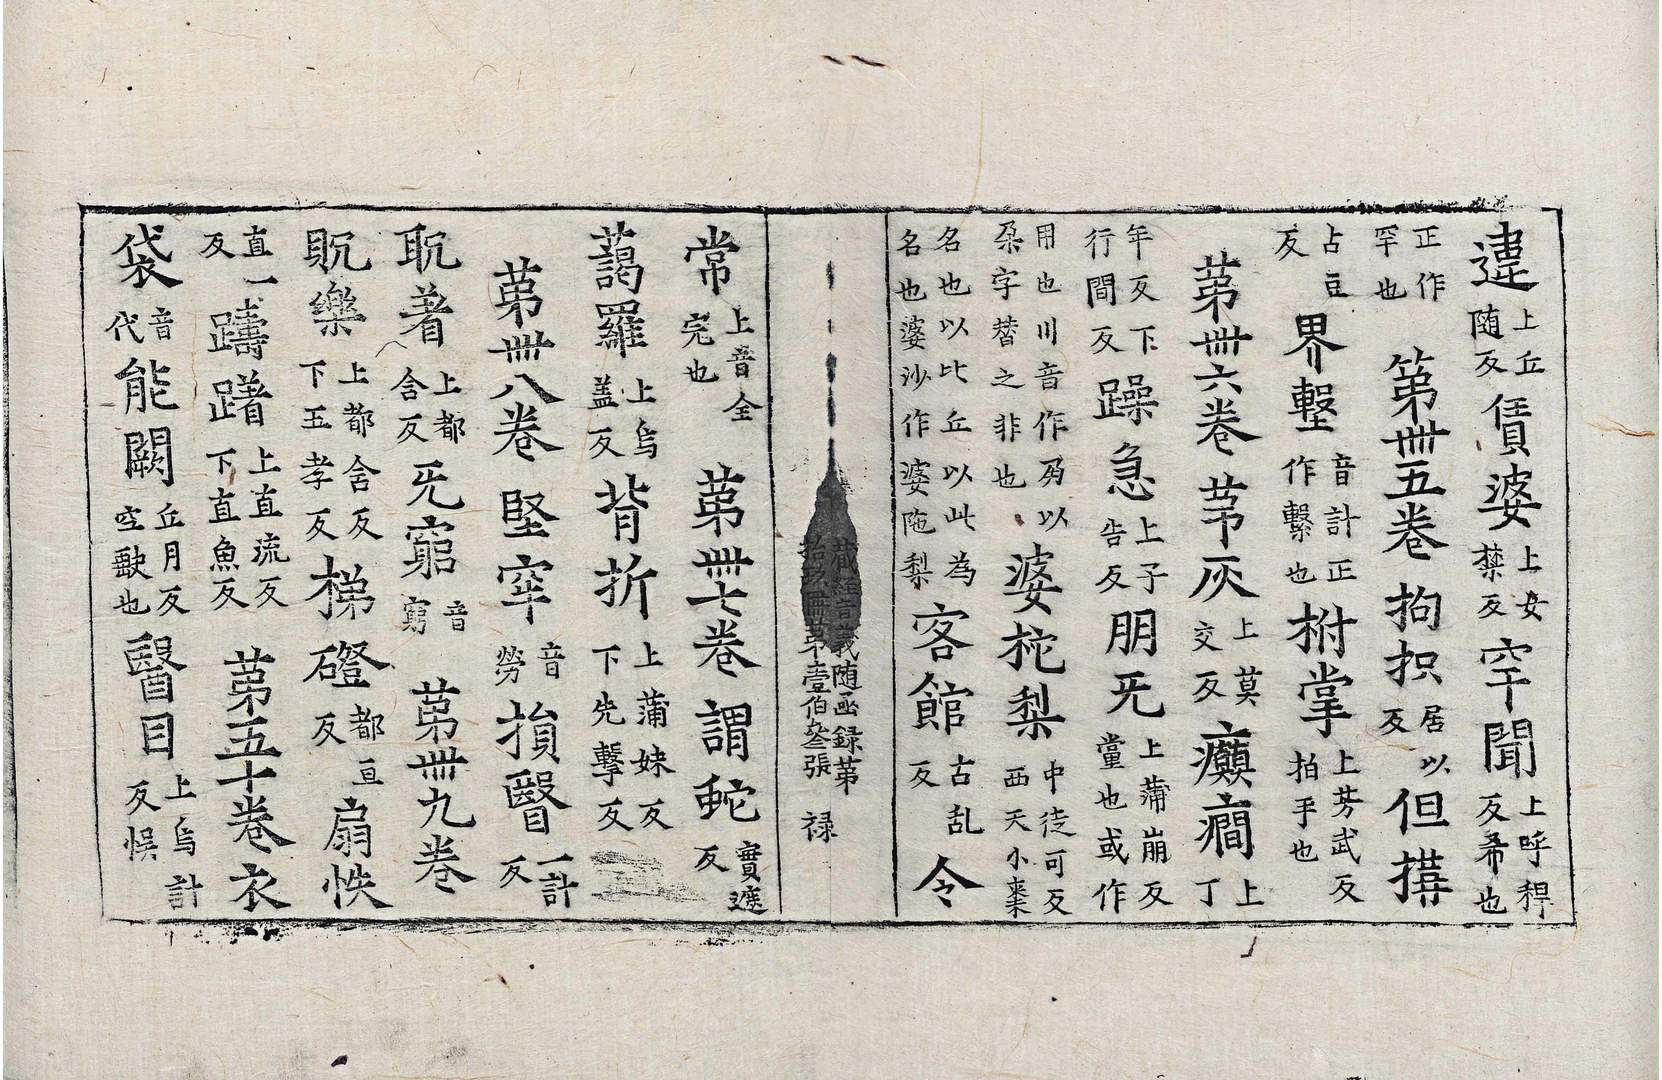 違上丘随反賃婆上女禁反罕聞上呼稈反希也
正作罕也第卌五卷拘抧居以反但搆
占豆反界䡖音計正作繫也柎掌上芳武反拍手也
第卌六卷茅灰上莫交反癲癎上丁
年反下行間反躁急上子告反朋旡上蒲崩反黨也或作
用也川音作朶字替之非也婆柁梨中徒可反西天小棗
名也以比丘以此為名也婆沙作婆陁梨客館古乱反令
藏經音義随函録第拾玖冊第壹伯叁張 禄
常上音全完也第卌七卷謂虵實遮反
藹羅上烏盖反背折上蒲妹反下先擊反
第卌八卷堅牢音勞損瞖一計反
躭着上都含反旡窮音窮第卌九卷
躭樂上都含反下五孝反梯磴都亘反扇帙
直一反躊躇上直流反下直魚反第五十卷衣
袋音代能闕丘月反空缺也瞖目上烏計反悞